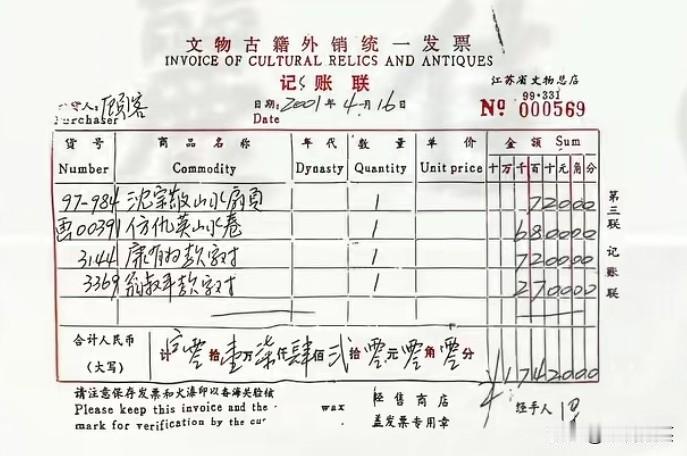 文物古籍外销统一发票
INVOICE OF CULTURAL RELICS AND ANTIQUES
记账联 江苏省文物总店
99·331
购货人: 顾客 日期: 2001年4月16日 № 000569
Purchaser Date
货号 商品名称 年代 数量 单价 金额 Sum
Number Commodity Dynasty Quantity Unit price 十万千百十元角分
97-984 沈宗敬山水扇页 1 72000
画00391 仿仇英山水卷 1 680000
3144 康有为款字对 1 720000
3369 翁叔平款字对 1 270000
合计人民币 计 零拾壹万柒仟肆佰贰拾零元零角零分 ¥1742000
(大写)
第三联 记账联
请注意保存发票和火漆印以备海关验核 经售商店 经手人
Please keep this invoice and the wax 盖发票专用章
mark for verification by the cus